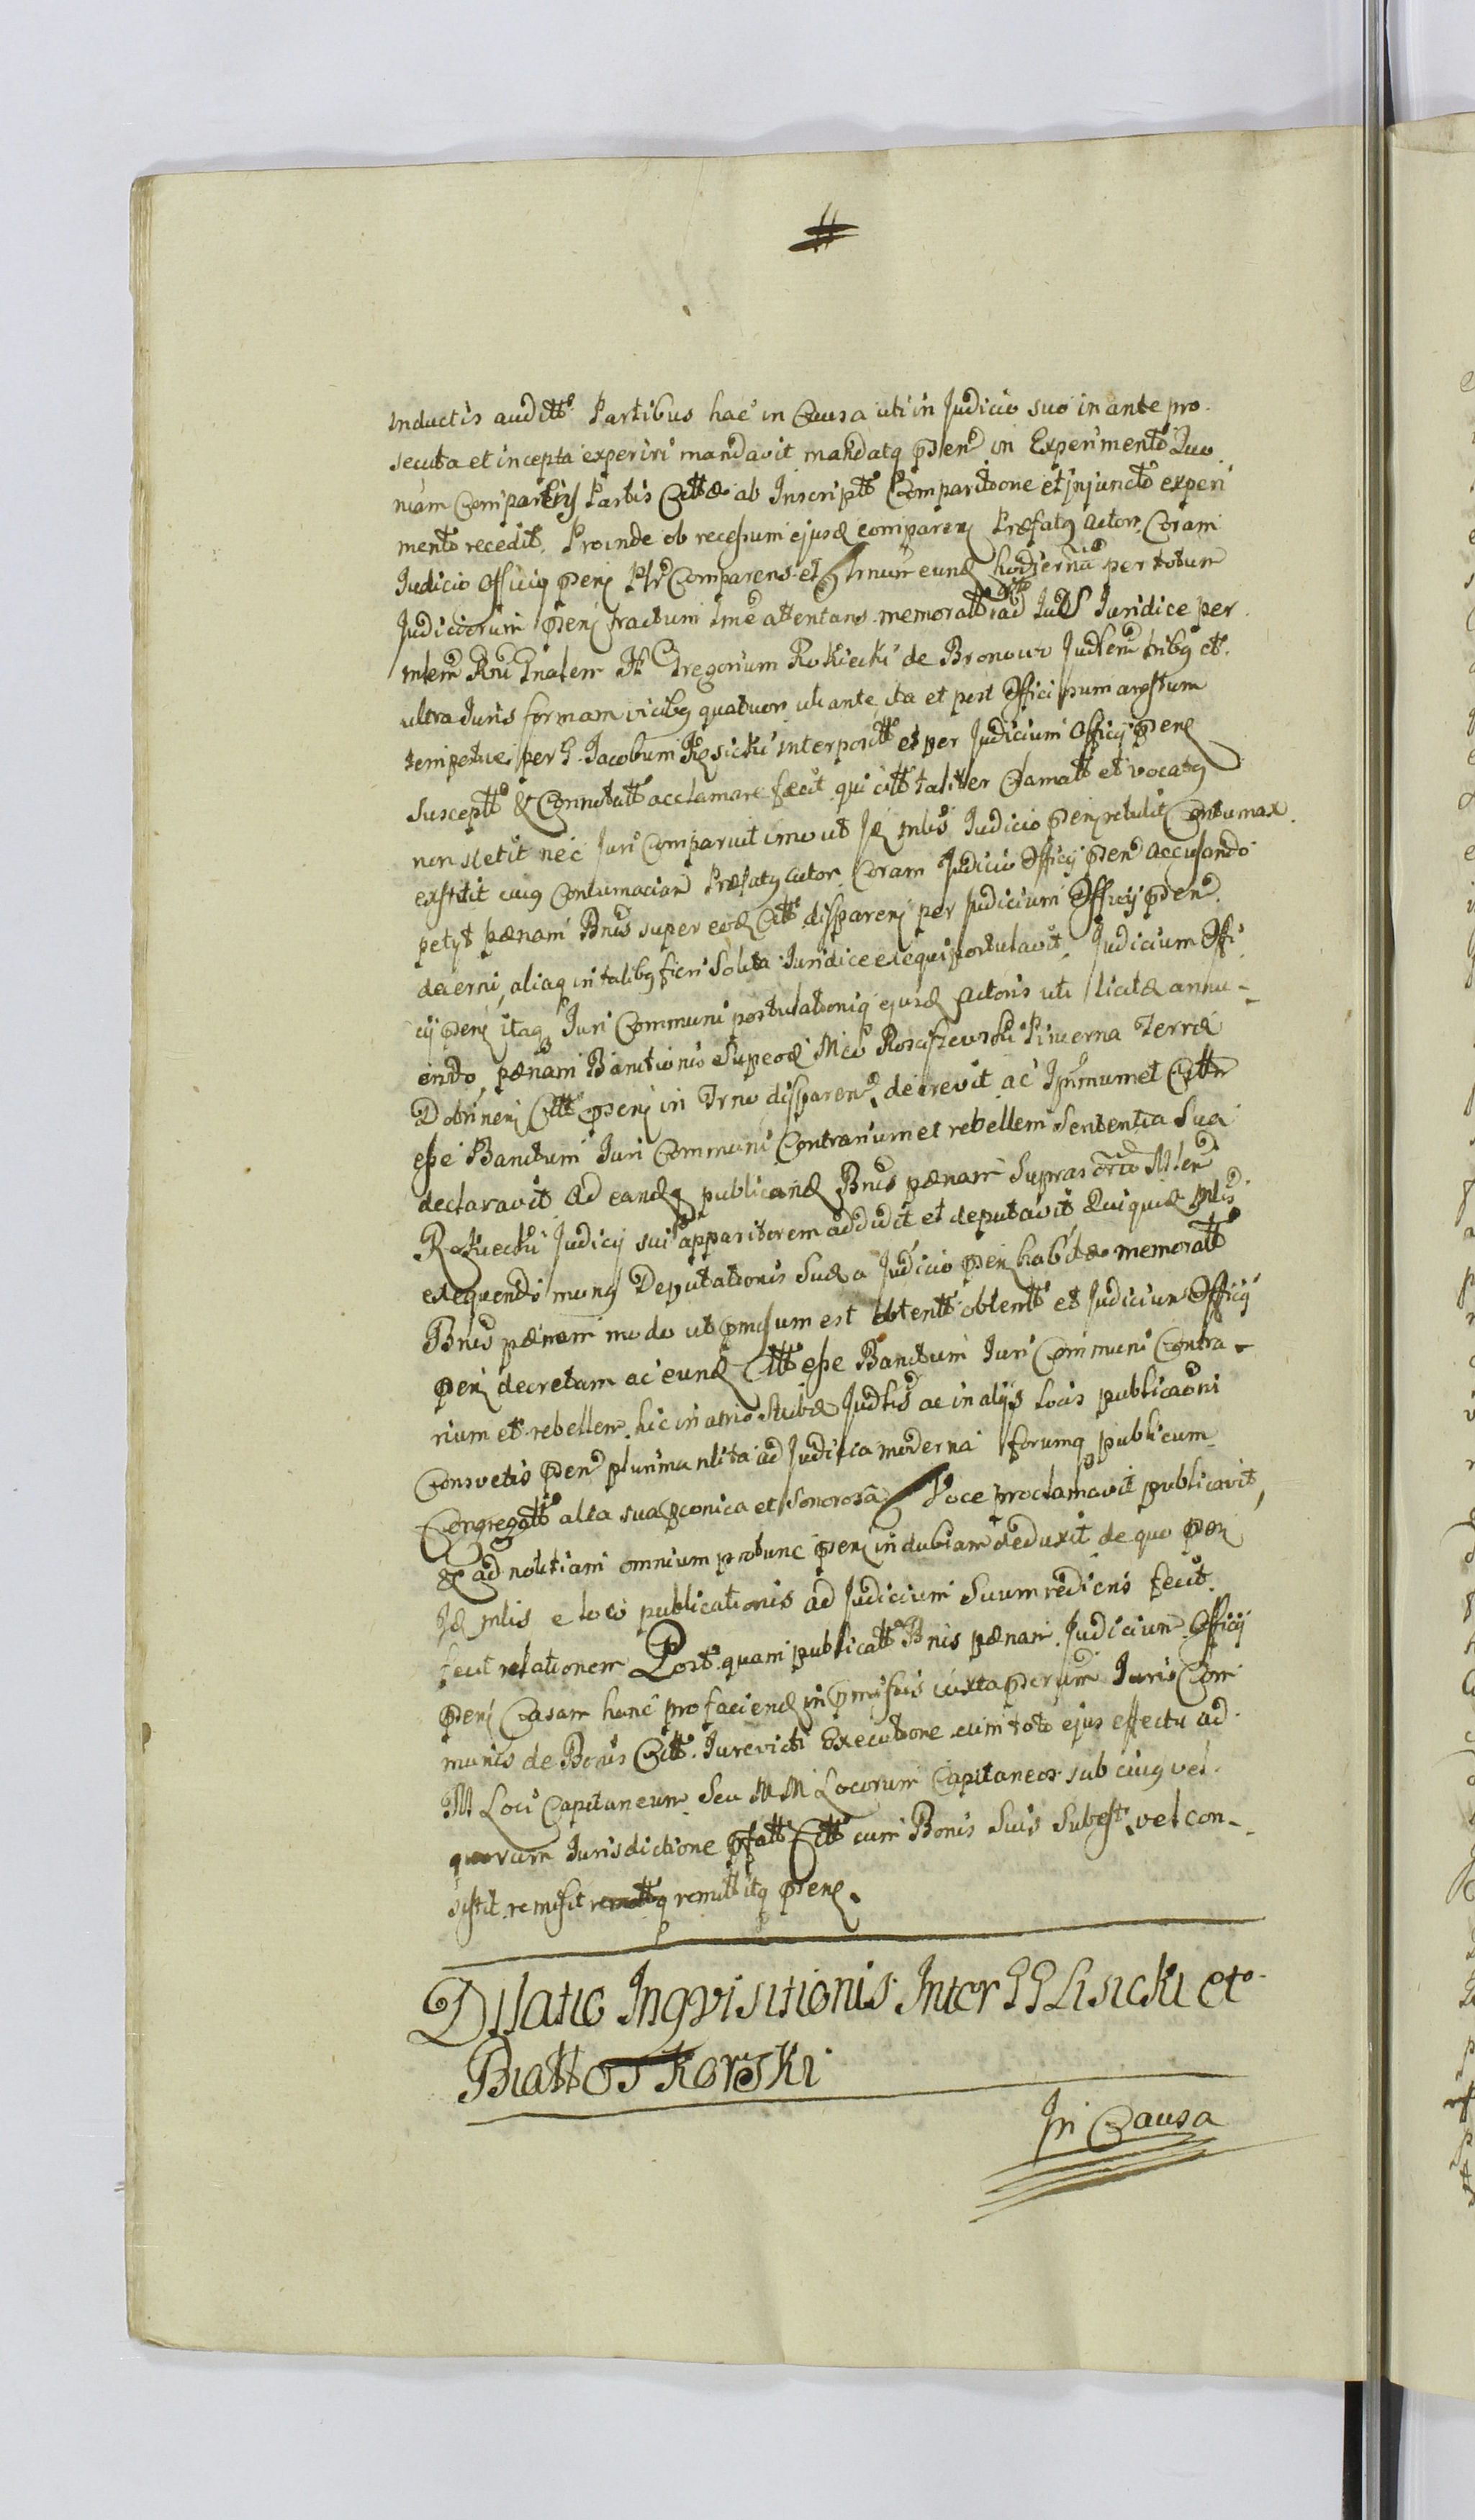 inductis auditt Partibus hac in Causa uti in Judicio suo in ante pro
secuta et incepta experiri mandavit mandatq pñen in Experimento Quo
niam Partis Cittæ ab Inscriptt Comparitione et injuncto experi
mento recedit. Proinde ob recessum ejusd comparen Præfatq Actor Coram
Judicio Officiq pñen Comparens et Trnum eund hodierna per totum
Judiciorum pñen tractum attentans memoratt ad Juridice per
Gnalem Gregorium Rokiecki de Bronowo Judlem tribq et
ultra Juris formam vicibq quatuor uti ante ita et post arestum
tempestive per G. Jacobum interpositt et per Judicium Officij pñen
Susceptt & Connotatt acclamare fecit qui citt taliter Clamatt et vocatq
non stetit nec Juri Comparuit imo ut Id mlis Judicio pñen retulit Contumax
exstitit cuiq Contumaciam Præfatq Actor Coram Judicio Officij pñen accusando
petyt pænam Bnis super eod Citt disparen per Judicium Officij pñen
decerni, aliaq in talibq fieri Solita Juridice exequi postulavit. Judicium Offi
cij pñen itaq Juri Communi postulationiq ejusd Actoris uti licitæ annu-
endo, pænam Banitionis Super eod Mco Pincerna Terræ
Dobrinen Citt pñen in Trno disparen decrevit ac Ipsummet Cittm
esse Banitum Juri Communi Contrarium et rebellem Sententia Sua
declaravit Ad eandq publicand Bnis pænam
Rokiecki Judicij sui apparitorem addidit et deputavit Qui quid mlis
exequendo munq Deputationis Suæ a Judicio pñen habitæ memoratt
Bnis pænam modo ut pmissum est obtentt obtentt et Judicium Officij
pñen decretam ac eund Citt esse Banitum Juri Communi Contra-
rium et rebellem hic in atrio Stubæ Judlis ac in alijs Locis publicaoni
Consvetis pñen plurima nlita ad Judicia moderna forumq publicum
Congregatt alta sua pconica et Sonorosa Voce proclamavit publicavit,
& ad notitiam omnium protunc pñen indubiam deduxit de quo pñen
Id mlis e loco publicationis ad Judicium Suum rediens fecit
fecit relationem Post quam publicatt Bnis pænam Judicium Officij
pñen Casam hanc pro faciend in pmissis iuxta Juris Com
munis de Bonis Citt Jurevicti Executione cum toto ejus effectu ad
M Loci Capitaneum Seu M M Locorum Capitaneos sub cuiq vel
quorum Jurisdictione pfatt Citt cum Bonis Suis Subest vel con-
sistit remisit remittitq pñen.
Dilatio Inqvisitionis Inter G G Lisicki et
Białłoskorski
In Causa